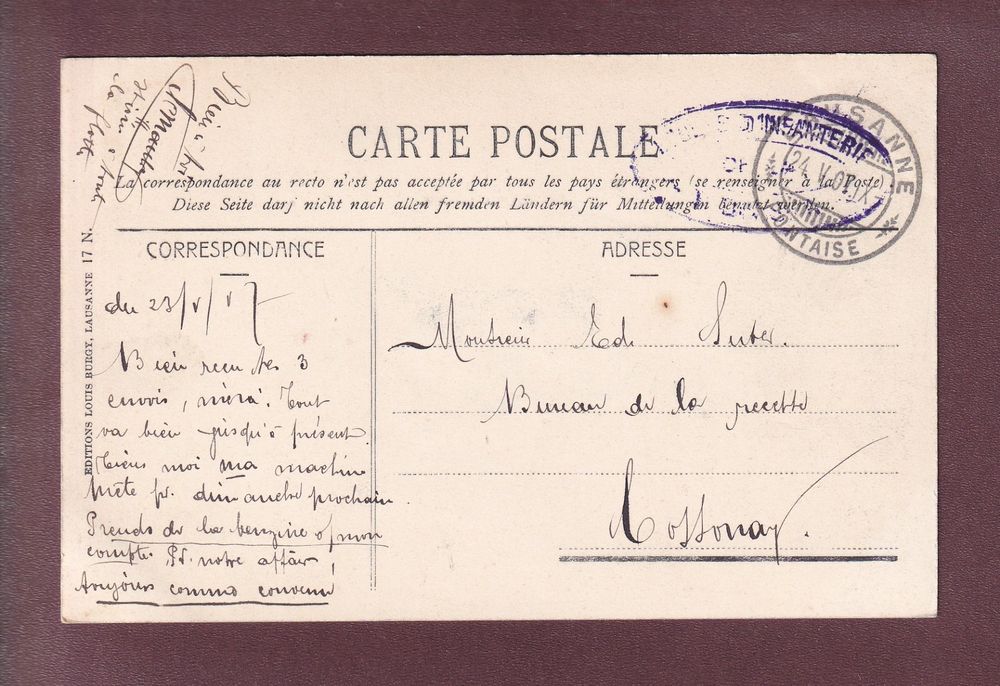 CARTE POSTALE
La correspondance au recto n'est pas acceptée par tous les pays étrangers (se renseigner à la Poste)
Diese Seite darf nicht nach allen fremden Ländern für Mitteilungen benutzt werden.
CORRESPONDANCE
du 23/V/07
Bien reçu tes 3
envois, merci. Tout
va bien jusqu'à présent.
Tiens moi ma machine
prête pr. dimanche prochain
Prends de la benzine à mon
compte. Pr. notre affaire,
toujours comme convenu
Bien à toi
ADRESSE
Monsieur Ed. Suter.
Bureau de la recette
Cossonay.
EDITIONS LOUIS BURGY, LAUSANNE 17 N.
D'INFANTERIE
LAUSANNE
24. V. 07
PONTAISE